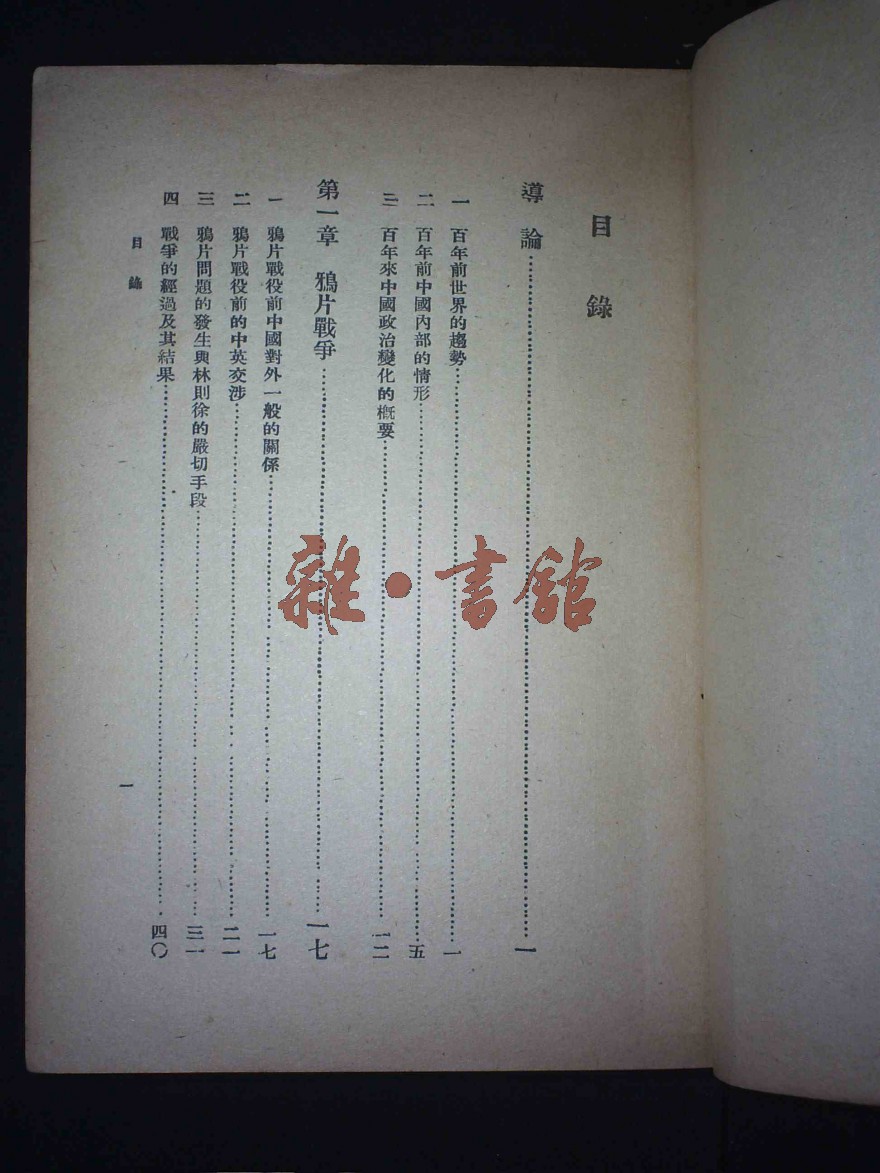 目錄
導論……一
一 百年前世界的趨勢……一
二 百年前中國內部的情形……五
三 百年來中國政治變化的概要……一二
第一章 鴉片戰爭……一七
一 鴉片戰役前中國對外一般的關係……一七
二 鴉片戰役前的中英交涉……二一
三 鴉片問題的發生與林則徐的嚴切手段……三一
四 戰爭的經過及其結果……四〇
目錄
一
雜·書館